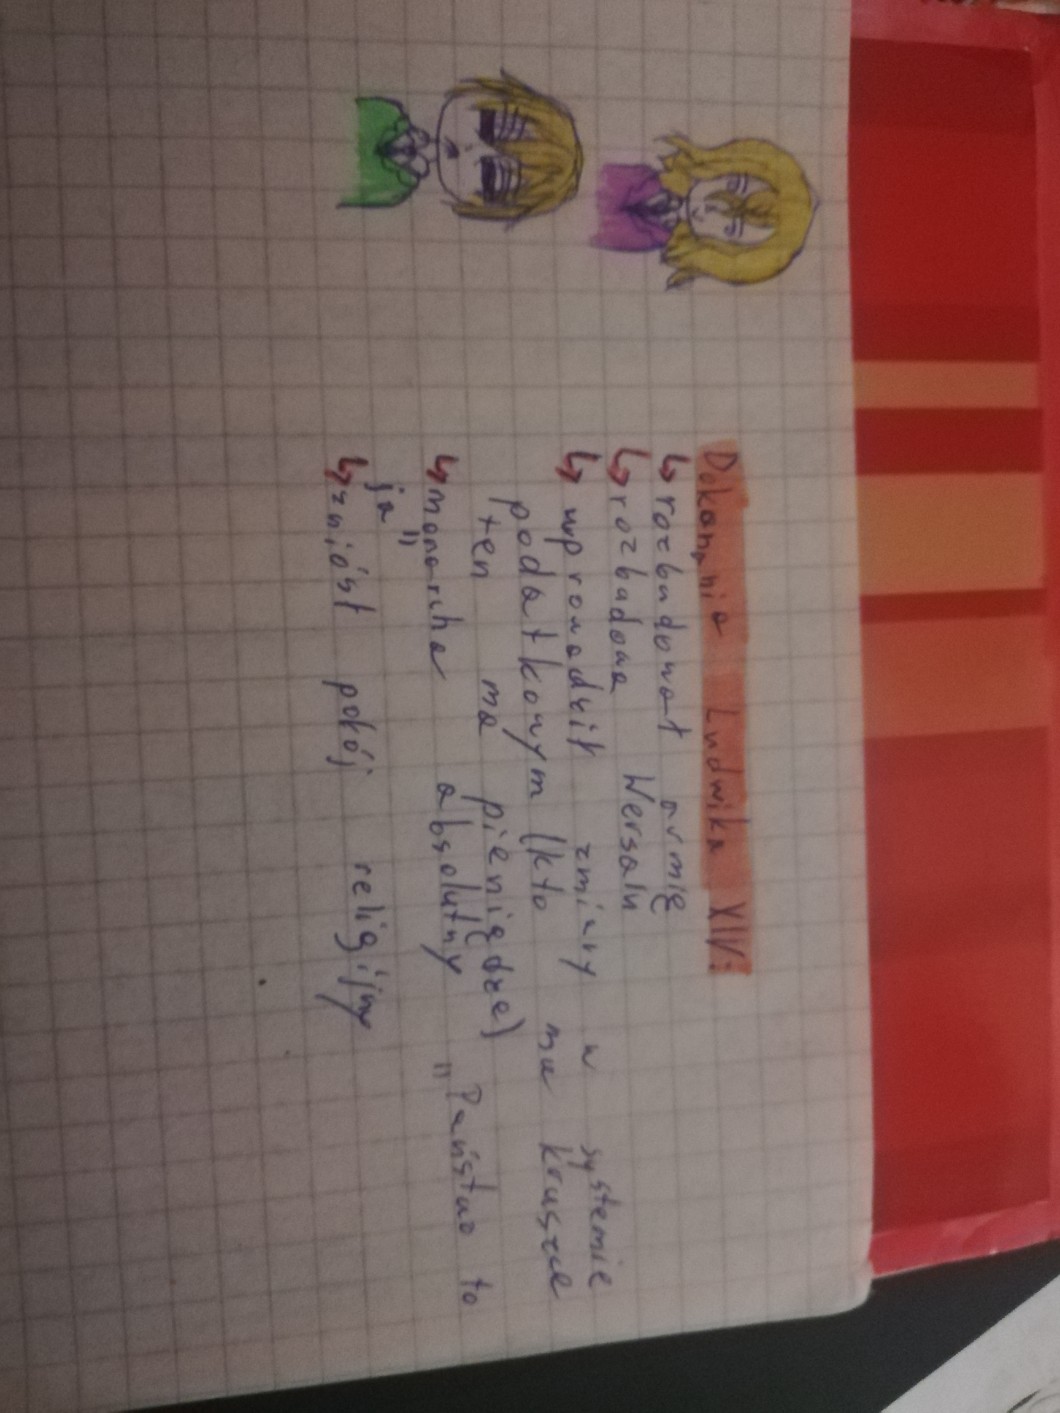 Dokonania Ludwika XIV:
↳ rozbudował armię
↳ rozbudowa Wersalu
↳ wprowadził zmiany w systemie
podatkowym (kto ma kruszce
ten ma pieniądze)
↳ monarcha absolutny "Państwo to
ja"
↳ zniósł pokój religijny